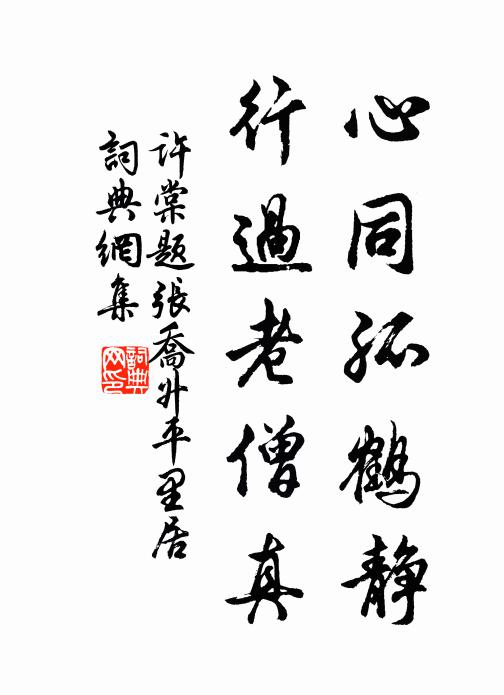 心同孤鶴静
行過老僧真
許棠题張喬升平里居
詞典網集
詞典网印